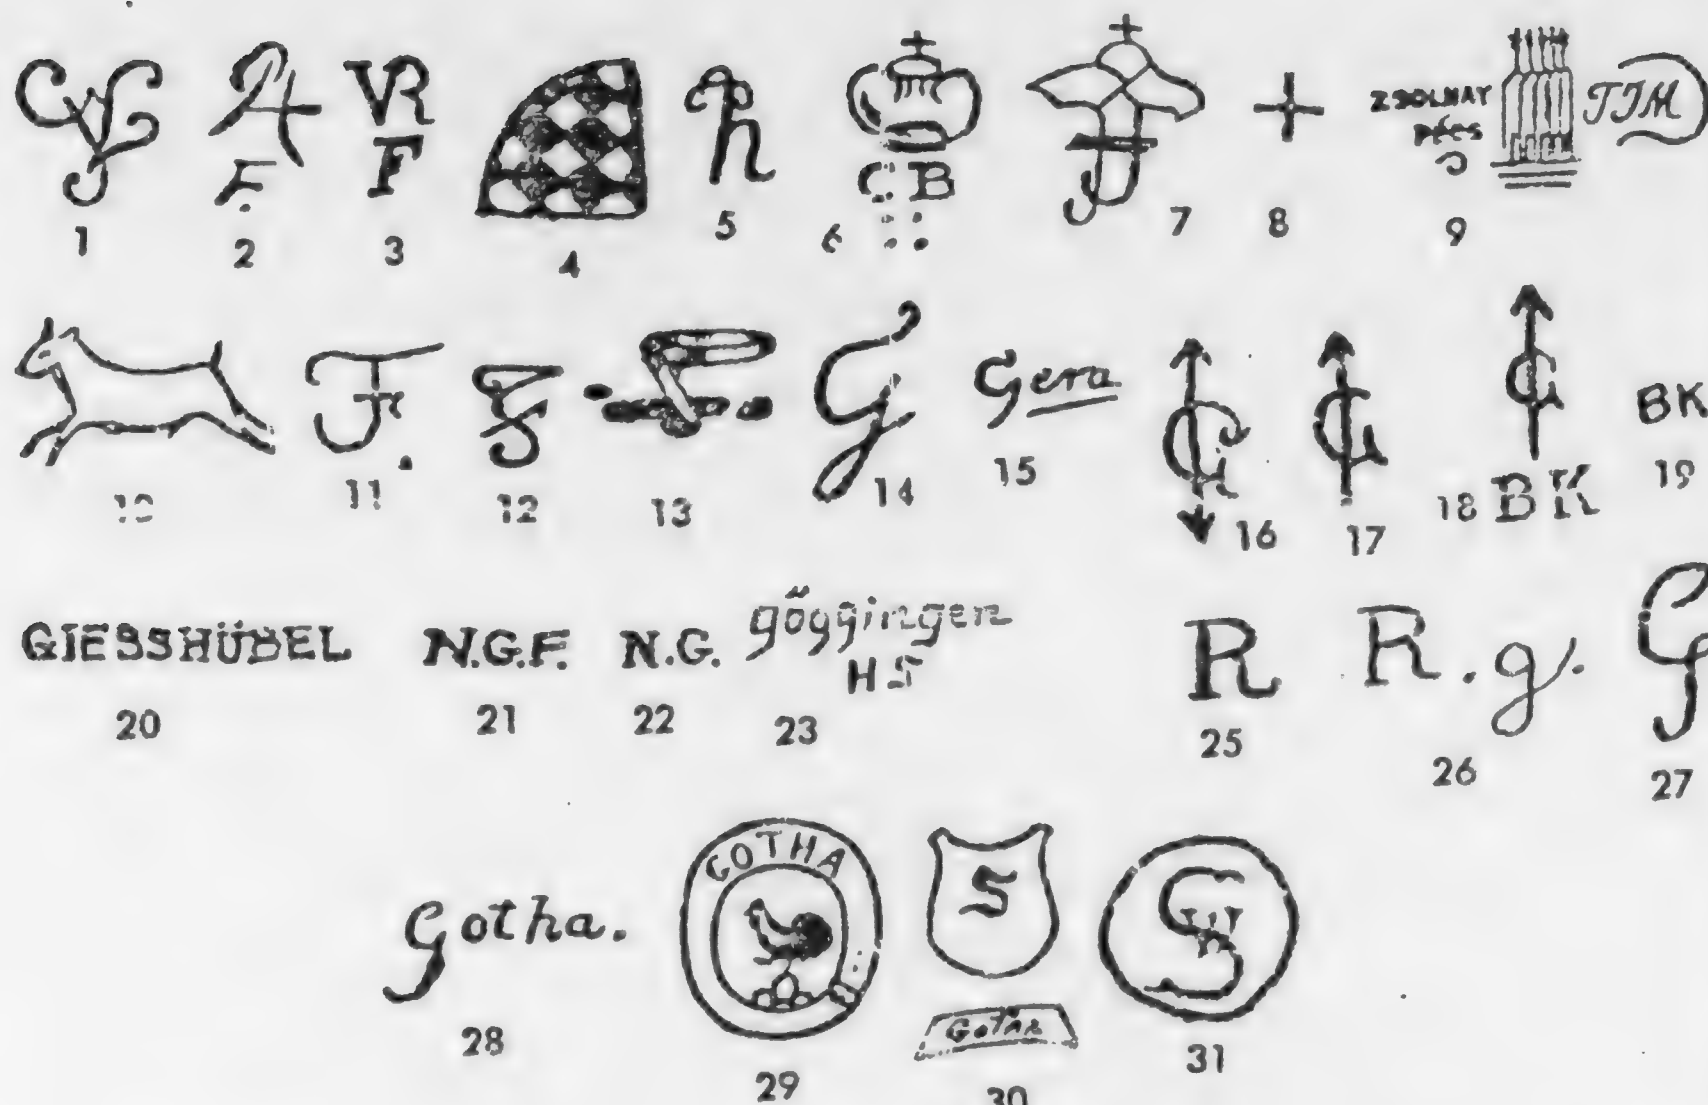 A
F.
VR
F
h
C B
ZSOLNAY
pécs
TJM
1 2 3 4 5 6 7 8 9
F.
G
Gera
G
G
G
BK
BK
10 11 12 13 14 15 16 17 18 19
GIESSHÜBEL N.G.F. N.G. göggingen
HS
R R.g. G
20 21 22 23 25 26 27
Gotha.
GOTHA
S
Gotha
S W
28 29 30 31